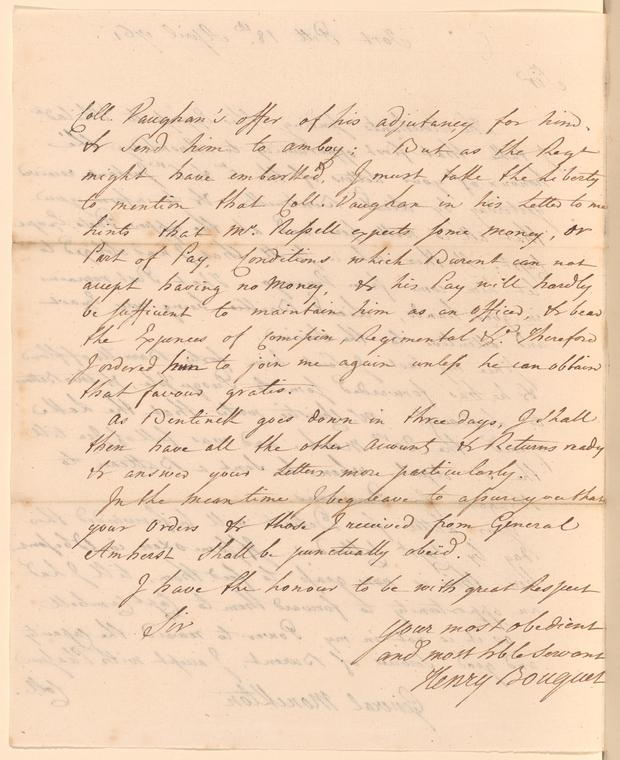 Coll. Vaughan's offer of his adjutancy for him,
& Send him to amboy: But as the Regt
might have embarked, I must take the Liberty
to mention that Coll. Vaughan in his Letter to me
hints that Mr. Russell expects some money, or
Part of Pay, Conditions which Burent can not
accept having no Money, & his Pay will hardly
be sufficient to maintain him as an officer, & bear
the Expences of Comission, Regimental &ca. Therefore
I ordered him to join me again unless he can obtain
that favour gratis.
as Dentinck goes down in three days, I shall
then have all the other account & Returns ready
& answer your Letters more particularly.
In the mean time I beg leave to assure you that
your Orders & those I received from General
Amherst shall be punctually obeid.
I have the honour to be with great Respect
Sir
your most obedient
and most hble servant
Henry Bouquet